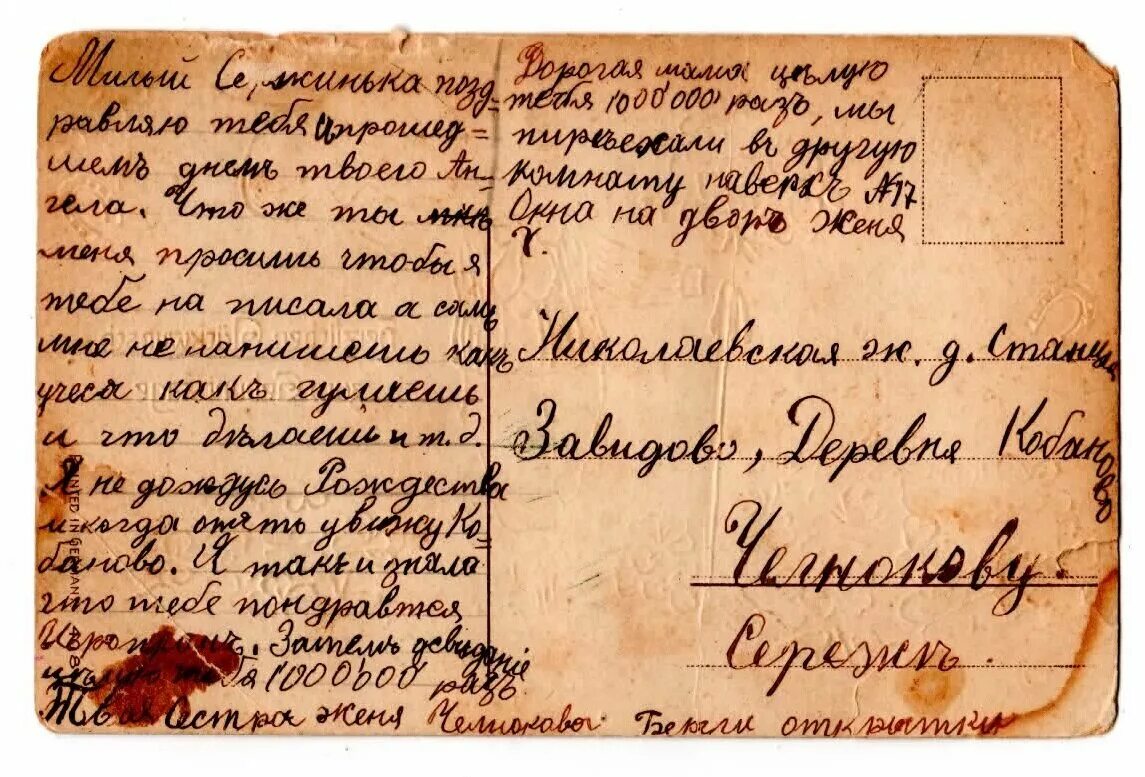 Милый Сережинька позд-
равляю тебя с прошед=
шемъ днемъ твоего Ан-
гела. Что же ты
меня просишь чтобы я
тебе на писала а самъ
мне не напишешь какъ
учеся какъ гуляешь
и что дѣлаешь и т. д.
Я не дождусь Рождества
и когда опять увижу Ко-
баново. Я такъ и знала
что тебе пондравтся
Затемъ досвиданіе
цѣлую тебя 1000'000 разъ
Твая Сестра Женя Челнокова. Береги открытки
Дорогая мама цѣлую
тебя 1000'000 разъ, мы
пирѣежали въ другую
комнату наверхъ №17
Окна на дворъ Женя
Ч.
Николаевская ж. д. Станція
Завидово, Деревня Кобаново
Челнокову.
Сережѣ.
PRINTED IN GERMANY